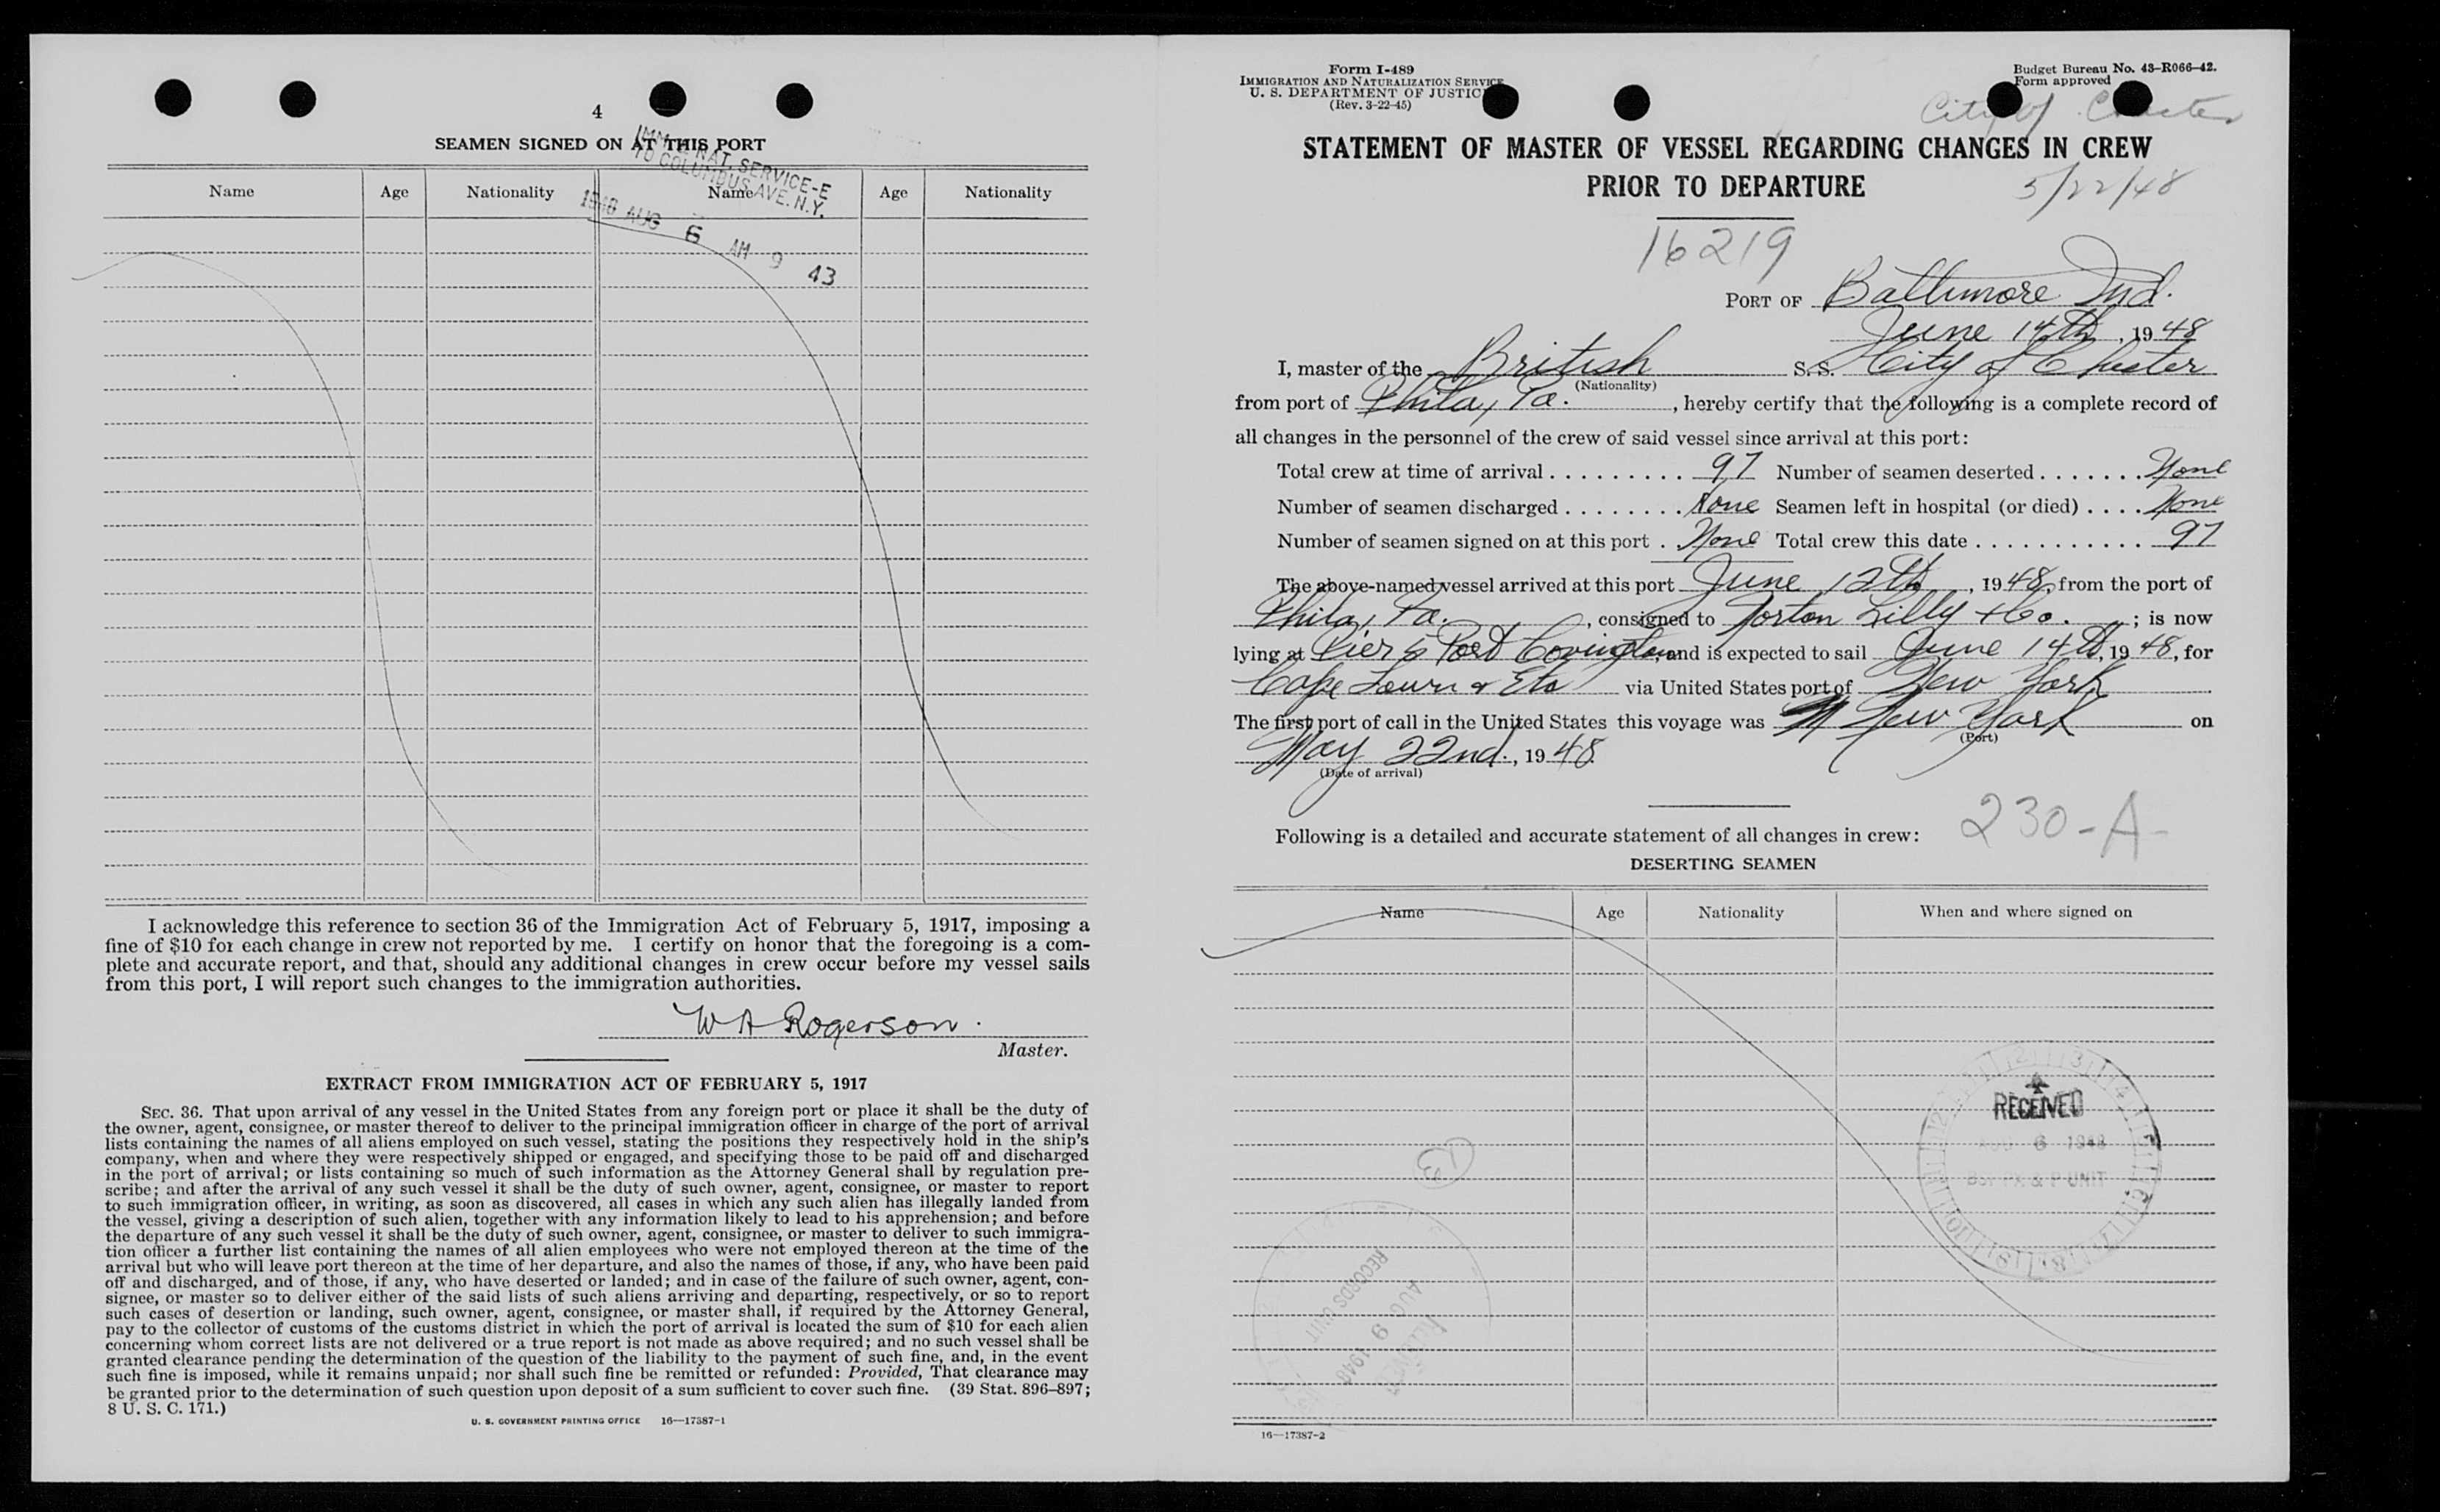 4
SEAMEN SIGNED ON AT THIS PORT
IMM. & NAT. SERVICE-E
70 COLUMBUS AVE. N.Y.
1948 AUG 6 AM 9 43
Name Age Nationality Name Age Nationality
I acknowledge this reference to section 36 of the Immigration Act of February 5, 1917, imposing a
fine of $10 for each change in crew not reported by me. I certify on honor that the foregoing is a com-
plete and accurate report, and that, should any additional changes in crew occur before my vessel sails
from this port, I will report such changes to the immigration authorities.
W A Rogerson.
Master.
EXTRACT FROM IMMIGRATION ACT OF FEBRUARY 5, 1917
SEC. 36. That upon arrival of any vessel in the United States from any foreign port or place it shall be the duty of
the owner, agent, consignee, or master thereof to deliver to the principal immigration officer in charge of the port of arrival
lists containing the names of all aliens employed on such vessel, stating the positions they respectively hold in the ship's
company, when and where they were respectively shipped or engaged, and specifying those to be paid off and discharged
in the port of arrival; or lists containing so much of such information as the Attorney General shall by regulation pre-
scribe; and after the arrival of any such vessel it shall be the duty of such owner, agent, consignee, or master to report
to such immigration officer, in writing, as soon as discovered, all cases in which any such alien has illegally landed from
the vessel, giving a description of such alien, together with any information likely to lead to his apprehension; and before
the departure of any such vessel it shall be the duty of such owner, agent, consignee, or master to deliver to such immigra-
tion officer a further list containing the names of all alien employees who were not employed thereon at the time of the
arrival but who will leave port thereon at the time of her departure, and also the names of those, if any, who have been paid
off and discharged, and of those, if any, who have deserted or landed; and in case of the failure of such owner, agent, con-
signee, or master so to deliver either of the said lists of such aliens arriving and departing, respectively, or so to report
such cases of desertion or landing, such owner, agent, consignee, or master shall, if required by the Attorney General,
pay to the collector of customs of the customs district in which the port of arrival is located the sum of $10 for each alien
concerning whom correct lists are not delivered or a true report is not made as above required; and no such vessel shall be
granted clearance pending the determination of the question of the liability to the payment of such fine, and, in the event
such fine is imposed, while it remains unpaid; nor shall such fine be remitted or refunded: Provided, That clearance may
be granted prior to the determination of such question upon deposit of a sum sufficient to cover such fine. (39 Stat. 896–897;
8 U. S. C. 171.)
U. S. GOVERNMENT PRINTING OFFICE 16—17387-1
Form I-489
IMMIGRATION AND NATURALIZATION SERVICE
U. S. DEPARTMENT OF JUSTICE
(Rev. 3-22-45)
Budget Bureau No. 43–R066–42.
Form approved
City of Chester
STATEMENT OF MASTER OF VESSEL REGARDING CHANGES IN CREW
PRIOR TO DEPARTURE
5/22/48
16219
PORT OF Baltimore Md.
June 14th, 1948
I, master of the British S. S. City of Chester
(Nationality)
from port of Phila, Pa., hereby certify that the following is a complete record of
all changes in the personnel of the crew of said vessel since arrival at this port:
Total crew at time of arrival . . . . . . . . . 97 Number of seamen deserted . . . . . . . None
Number of seamen discharged . . . . . . . . None Seamen left in hospital (or died) . . . . None
Number of seamen signed on at this port . None Total crew this date . . . . . . . . . . . . 97
The above-named vessel arrived at this port June 12th, 1948, from the port of
Phila, Pa., consigned to Norton Lilly & Co.; is now
lying at Pier 5 Port Covington, and is expected to sail June 14th, 1948, for
Cape Town & Etc via United States port of New York
The first port of call in the United States this voyage was New York on
(Port)
May 22nd., 1948
(Date of arrival)
230-A-
Following is a detailed and accurate statement of all changes in crew:
DESERTING SEAMEN
Name Age Nationality When and where signed on
RECEIVED
AUG 6 1948
& P UNIT
RECEIVED
AUG 9 1948
RECORDS UNIT
16—17387-2